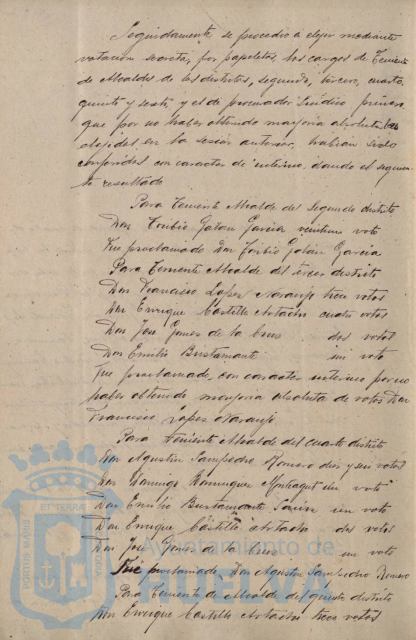 Seguidamente se procedió a elejir mediante
votación secreta, por papeletas, los cargos de Teniente
de Alcaldes de los distritos, segundo, tercero, cuarto
quinto y sesto, y el de procurador Síndico primero
que por no haber obtenido mayoría absoluta los
elejidos en la sesión anterior, habían sido
conferidos con caracter de interino, dando el siguien-
te resultado
Para Teniente Alcalde del segundo distrito
Don Toribio Galán García veintiun voto
Fue proclamado Don Toribio Galán García
Para Teniente Alcalde del tercer distrito
Don Francisco Lopez Naranjo trece votos
Don Enrique Castillo cuatro votos
Don José Gomez de la dos votos
Don Emilio Bustamante un voto
Fue proclamado, con caracter interino por no
haber obtenido mayoría absoluta de votos Don
Francisco Lopez Naranjo
Para Teniente Alcalde del cuarto distrito
Don Agustin Sampedro Romero diez y seis votos
Don Domingo Dominguez un voto
Don Emilio Bustamante un voto
Don Enrique Castillo dos votos
Don José Gomez de la un voto
Fué proclamado Don Agustin Sampedro Romero
Para Teniente de Alcalde del quinto distrito
Don Enrique Castillo trece votos
PORTUS MARIS ET TERRAE CUSTODIA
Ayuntamiento de
HUELVA